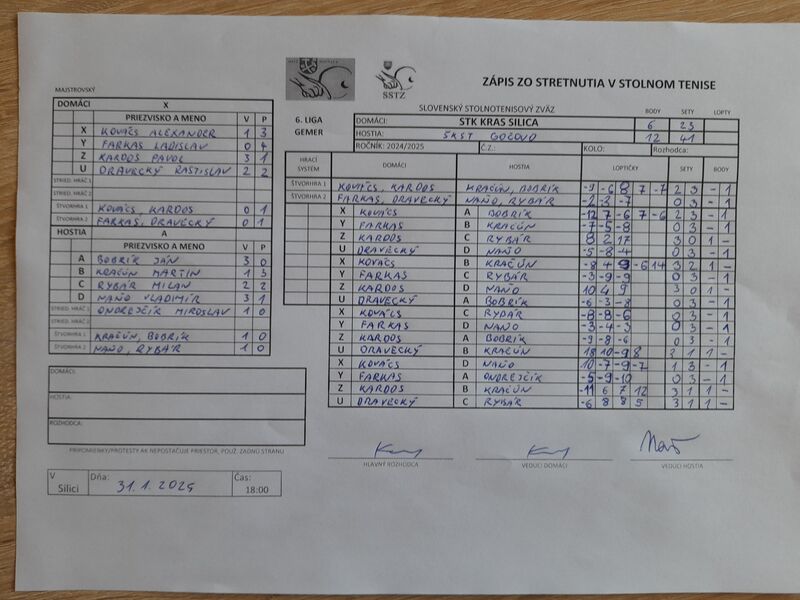 ZÁPIS ZO STRETNUTIA V STOLNOM TENISE
SSTZ
SLOVENSKÝ STOLNOTENISOVÝ ZVÄZ
BODY SETY LOPTY
6. LIGA GEMER
DOMÁCI: STK KRAS SILICA 6 23
HOSTIA: ŠKST GOČOVO 12 41
ROČNÍK: 2024/2025 Č.Z.: KOLO: Rozhodca:
MAJSTROVSKÝ
DOMÁCI X
PRIEZVISKO A MENO V P
X KOVÁCS ALEXANDER 1 3
Y FARKAS LADISLAV 0 4
Z KARDOS PAVOL 3 1
U DRAVECKÝ RASTISLAV 2 2
STRIED. HRÁČ 1
STRIED. HRÁČ 2
ŠTVORHRA 1 KOVÁCS, KARDOS 0 1
ŠTVORHRA 2 FARKAS, DRAVECKÝ 0 1
HOSTIA A
PRIEZVISKO A MENO V P
A BOBRÍK JÁN 3 0
B KRAČÚN MARTIN 1 3
C RYBÁR MILAN 2 2
D NAŇO VLADIMÍR 3 1
STRIED. HRÁČ 1 ONDREJČÍK MIROSLAV 1 0
STRIED. HRÁČ 2
ŠTVORHRA 1 KRAČÚN, BOBRÍK 1 0
ŠTVORHRA 2 NAŇO, RYBÁR 1 0
HRACÍ SYSTÉM DOMÁCI HOSTIA LOPTIČKY SETY BODY
ŠTVORHRA 1 KOVÁCS, KARDOS KRAČÚN, BOBRÍK -9 -6 8 7 -7 2 3 - 1
ŠTVORHRA 2 FARKAS, DRAVECKÝ NAŇO, RYBÁR -2 -2 -7 0 3 - 1
X KOVÁCS A BOBRÍK -12 7 -6 7 -6 2 3 - 1
Y FARKAS B KRAČÚN -7 -5 -8 0 3 - 1
Z KARDOS C RYBÁR 8 2 17 3 0 1 -
U DRAVECKÝ D NAŇO -5 -8 -4 0 3 - 1
X KOVÁCS B KRAČÚN -8 4 9 -6 14 3 2 1 -
Y FARKAS C RYBÁR -3 -9 -9 0 3 - 1
Z KARDOS D NAŇO 10 4 9 3 0 1 -
U DRAVECKÝ A BOBRÍK -6 -3 -8 0 3 - 1
X KOVÁCS C RYBÁR -8 -8 -6 0 3 - 1
Y FARKAS D NAŇO -3 -4 -3 0 3 - 1
Z KARDOS A BOBRÍK -9 -8 -6 0 3 - 1
U DRAVECKÝ B KRAČÚN 18 10 -9 8 3 1 1 -
X KOVÁCS D NAŇO 10 -7 -9 -7 1 3 - 1
Y FARKAS A ONDREJČÍK -5 -9 -10 0 3 - 1
Z KARDOS B KRAČÚN -11 6 7 12 3 1 1 -
U DRAVECKÝ C RYBÁR -6 8 8 5 3 1 1 -
DOMÁCI:
HOSTIA:
ROZHODCA:
PRIPOMIENKY/PROTESTY AK NEPOSTAČUJE PRIESTOR, POUŽ. ZADNÚ STRANU
HLAVNÝ ROZHODCA VEDÚCI DOMÁCI VEDÚCI HOSTIA
V Silici Dňa: 31.1.2025 Čas: 18:00